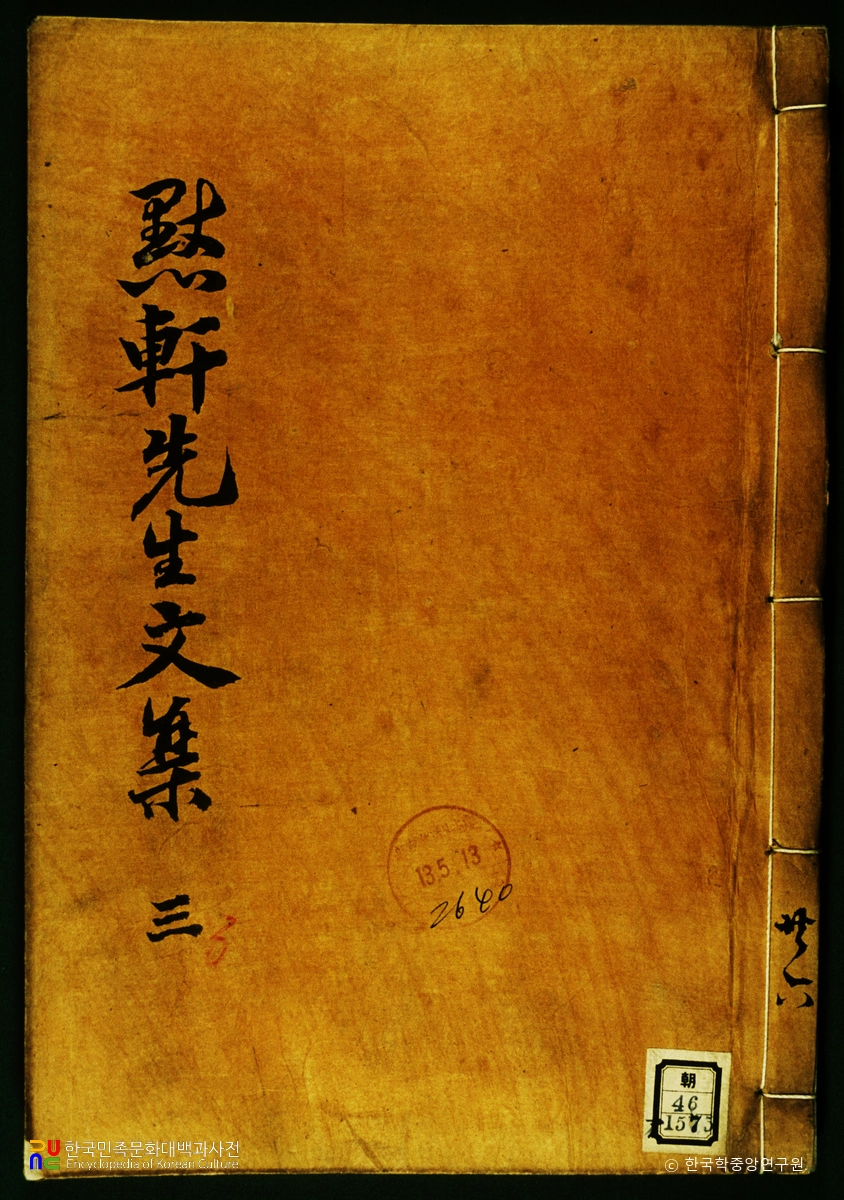 默軒先生文集 三
13.5.13
2640
共六
朝
46
1573
한국민족문화대백과사전
Encyclopedia of Korean Culture
© 한국학중앙연구원